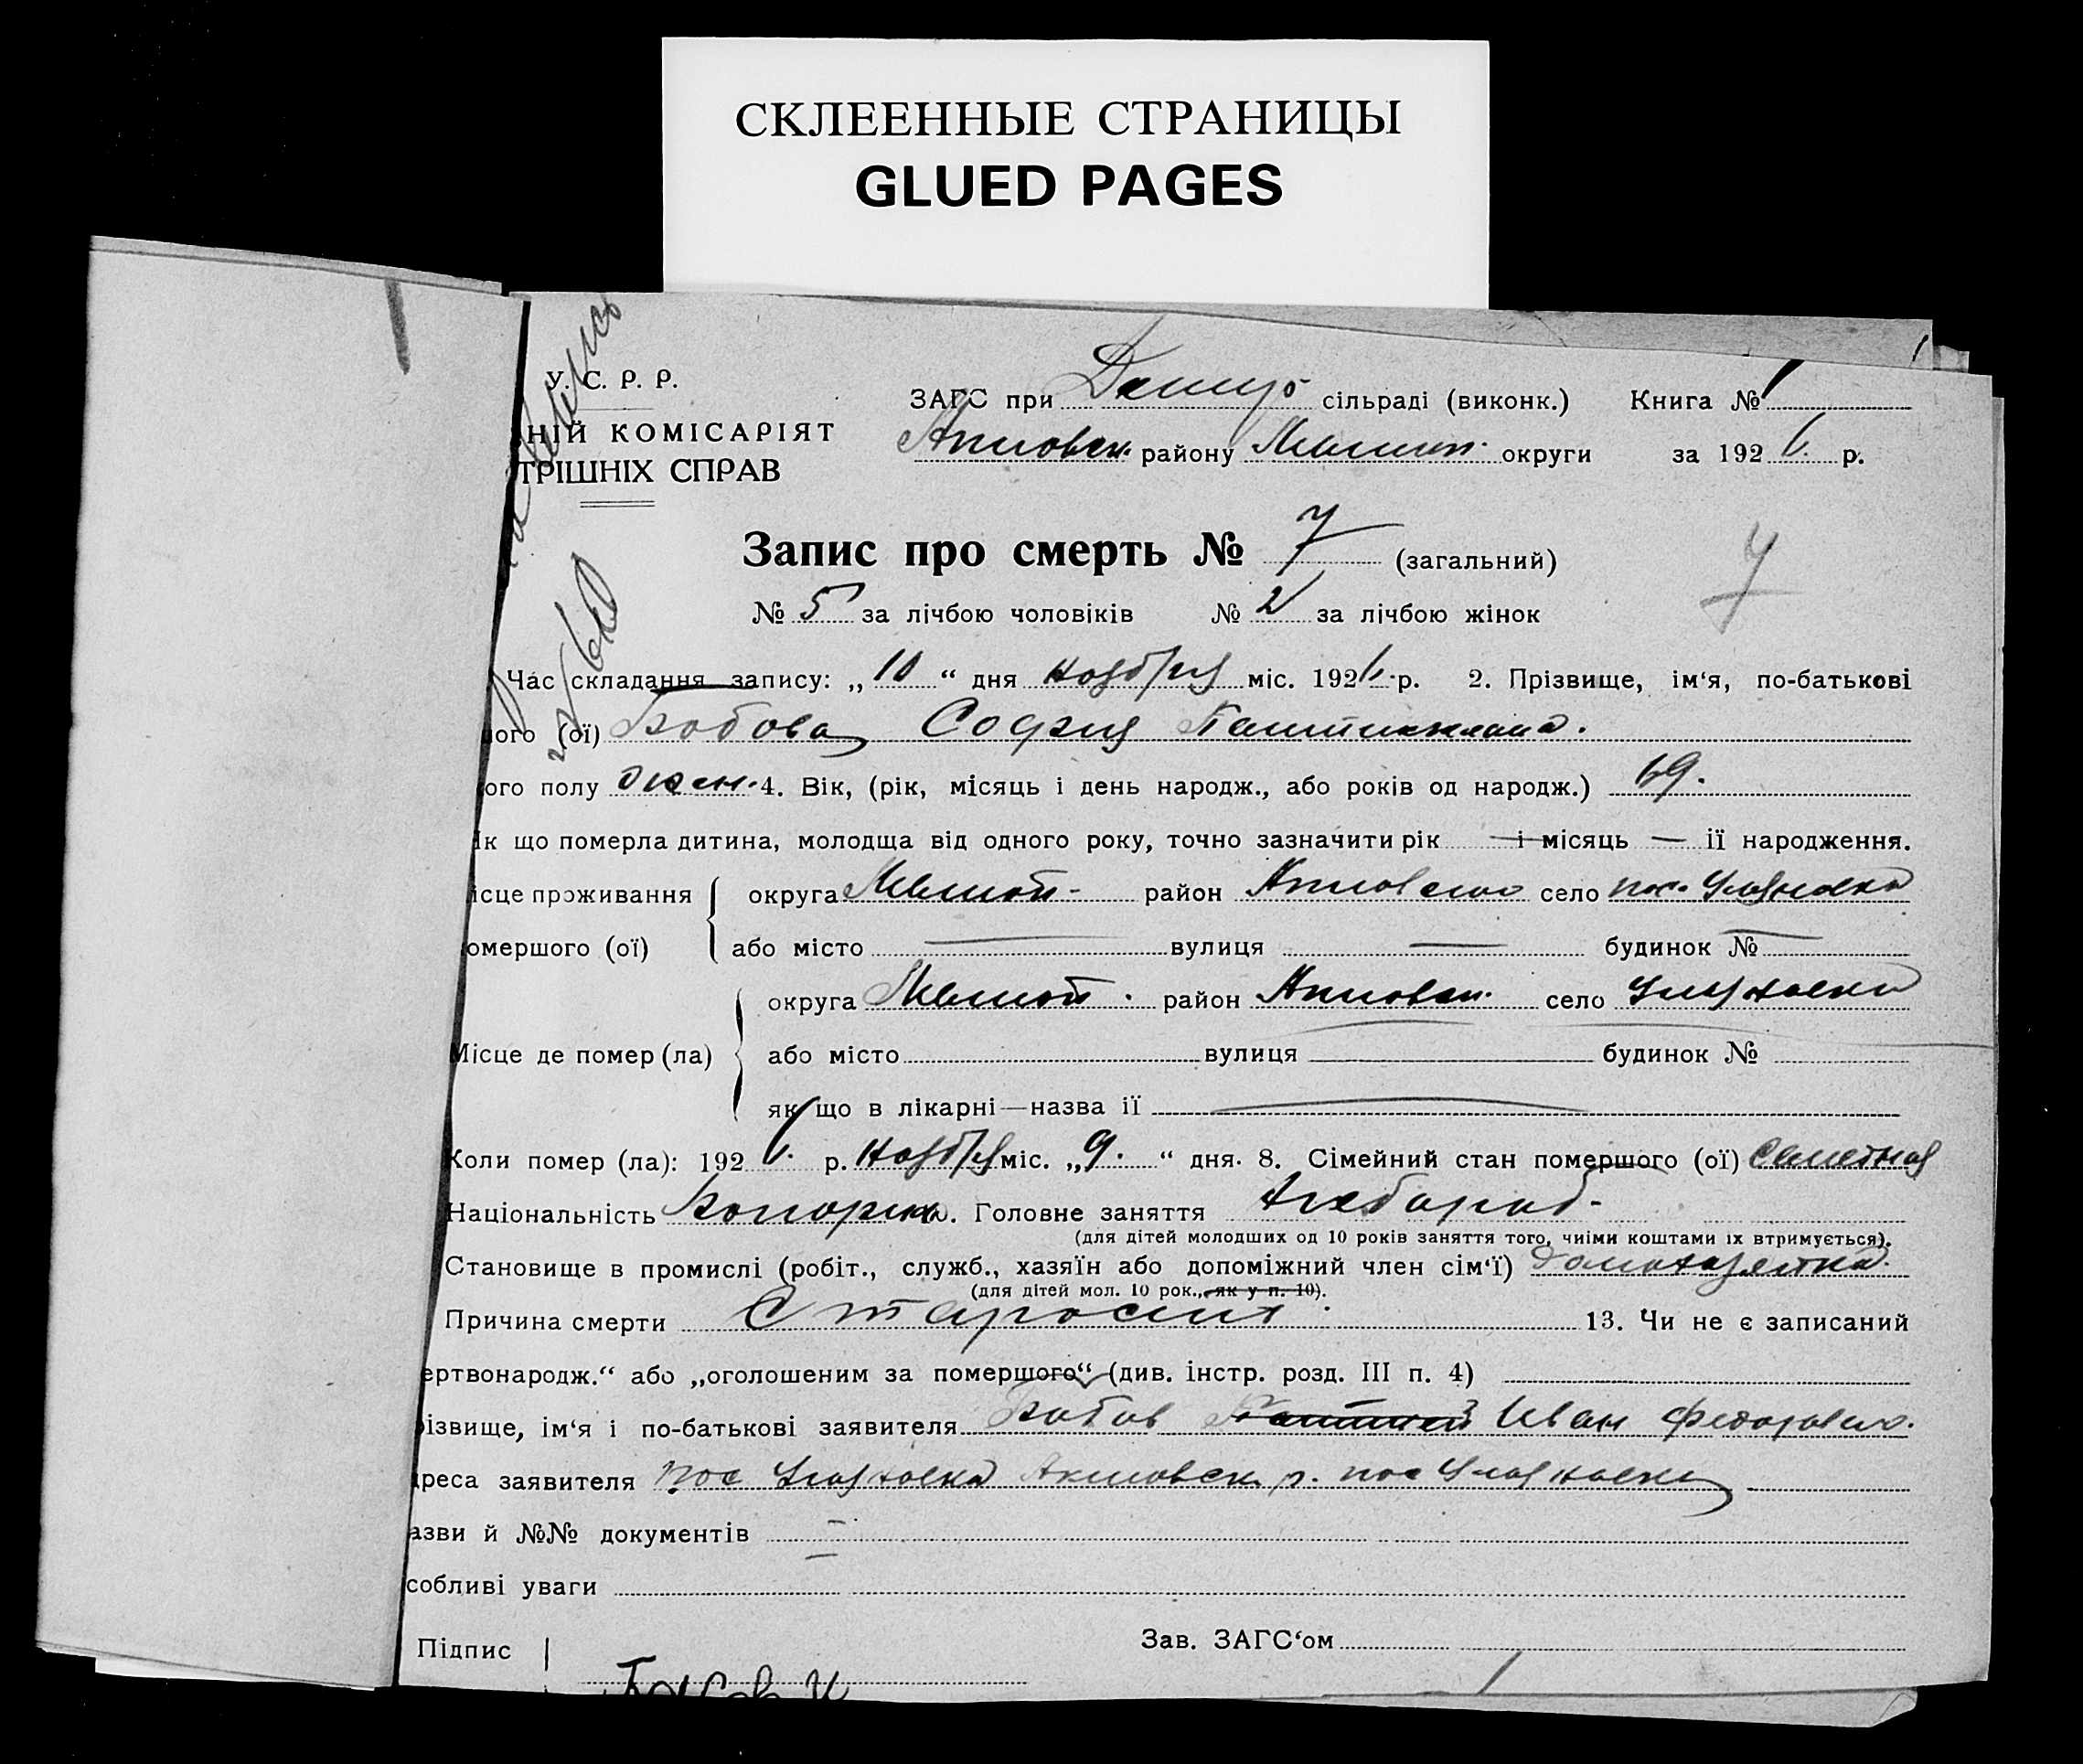 СКЛЕЕННЫЕ СТРАНИЦЫ
GLUED PAGES
У. С. Р. Р.
НІЙ КОМІСАРІЯТ
ТРІШНІХ СПРАВ
ЗАГС при сільраді (виконк.) Книга № 1
району округи за 1926 р.
Запис про смерть № 7 (загальний)
7
№ 5 за лічбою чоловіків № 2 за лічбою жінок
Час складання запису: „10“ дня ноября міс. 1926 р. 2. Прізвище, ім‘я, по-батькові
ого (ої) Бобова София
ого полу жен. 4. Вік, (рік, місяць і день народж., або років од народж.) 69.
як що померла дитина, молодща від одного року, точно зазначити рік — і місяць — ії народження.
ісце проживання округа район село пос.
омершого (ої) або місто — вулиця — будинок № —
округа район село
Місце де помер (ла) або місто вулиця будинок №
як що в лікарні — назва ії
Коли помер (ла): 1926. р. ноября міс. „9.“ дня. 8. Сімейний стан помершого (ої) семейная
Національність Головне заняття хлебороб.
(для дітей молодших од 10 років заняття того, чиїми коштами іх втримується).
Становище в промислі (робіт., служб., хазяїн або допоміжний член сім‘ї) домохозяйка.
(для дітей мол. 10 рок., як у п. 10).
Причина смерти Старости. 13. Чи не є записаний
ертвонародж.“ або „оголошеним за помершого“ (див. інстр. розд. III п. 4)
різвище, ім‘я і по-батькові заявителя Бобов Иван Федорович.
дреса заявителя пос р. пос
азви й №№ документів —
собливі уваги
Підпис Зав. ЗАГС‘ом